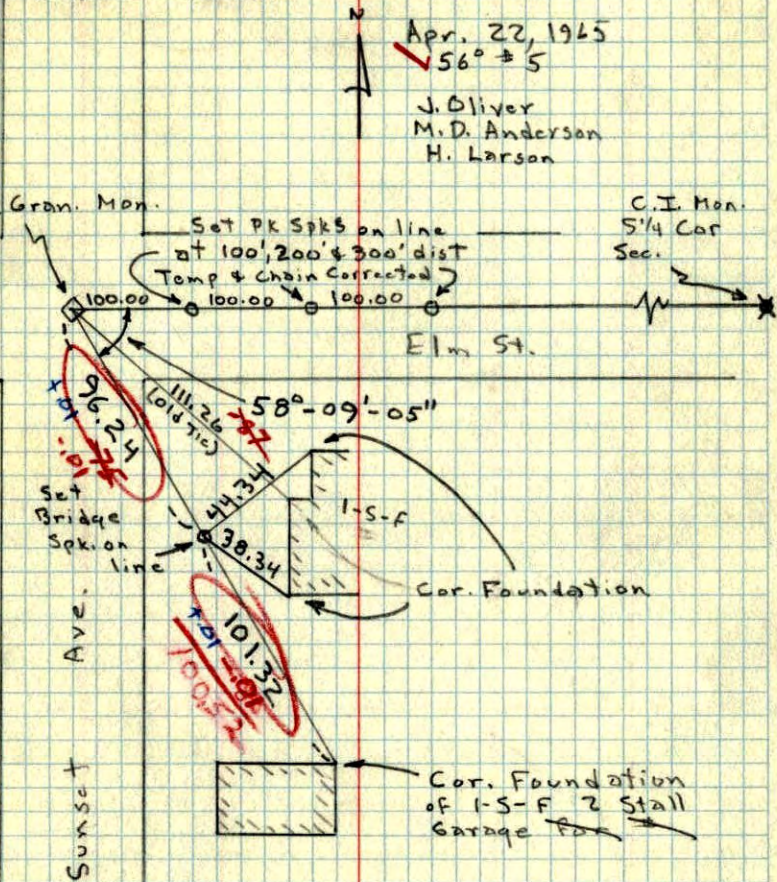 N
Apr. 22, 1965
✓ 56° # 5
J. Oliver
M. D. Anderson
H. Larson
Gran. Mon.
Set PK Spks on line
at 100', 200' & 300' dist
Temp & Chain Corrected
C.I. Mon.
S 1/4 Cor
Sec.
100.00 100.00 100.00
Elm St.
58°-09'-05"
111.26
(Old Tie)
.87
96.24
+.01
-.01
.75
Set
Bridge
Spk. on
line
44.34
38.34
1-S-F
Cor. Foundation
101.32
+.01
100.52
Cor. Foundation
of 1-S-F 2 Stall
Garage
Sunset Ave.